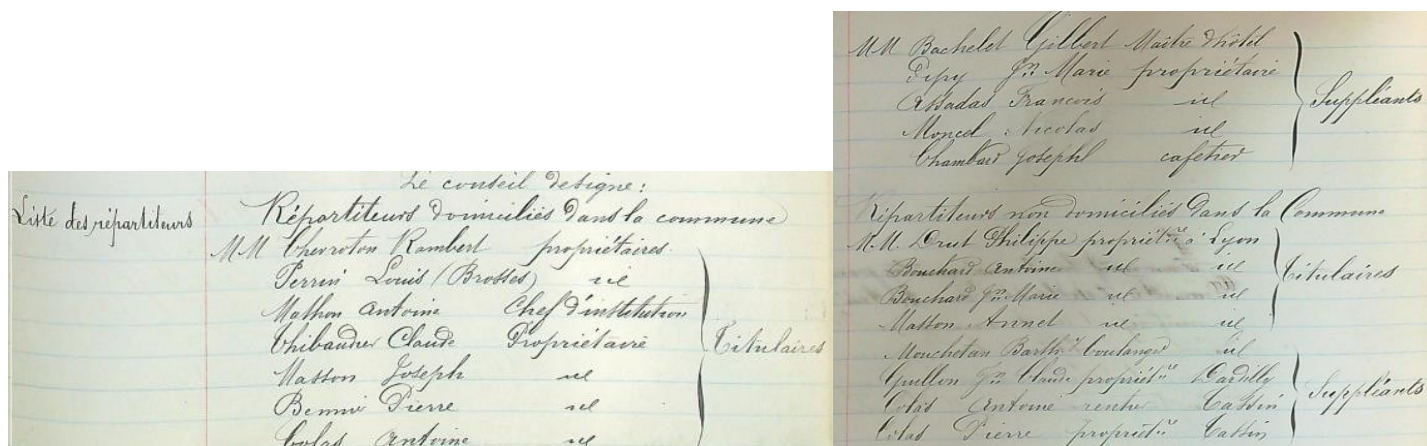 Le conseil designe:
Liste des répartiteurs
Répartiteurs domiciliés dans la commune
MM Chevroton Rambert propriétaires
Perrin Louis (Brosses) id
Mathon Antoine Chef d'institution
Thibaudier Claude Propriétaire
Masson Joseph id
Pierre id
Colas Antoine id
Titulaires
MM Bachelet Gilbert Maître d'hôtel
Pipy Jn Marie propriétaire
Assadas François id
Moncel Nicolas id
Chambard Joseph cafetier
Suppléants
Répartiteurs non domiciliés dans la Commune
M.M. Drut Philippe propriétre à Lyon
Bouchard Antoine id id
Bouchard Jn Marie id id
Masson Annet id id
Titulaires
Barthy boulanger id
Guillon Jn Claude propriétre Dardilly
Colas Antoine rentier Tassin
Colas Pierre propriétre Tassin
Suppléants